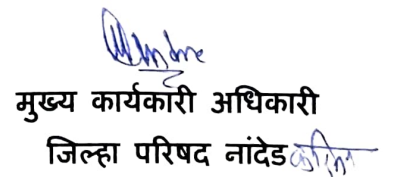 मुख्य कार्यकारी अधिकारी
जिल्हा परिषद नांदेड